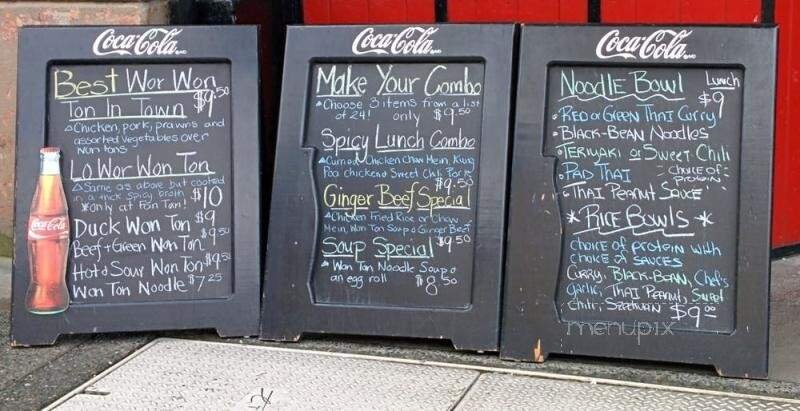 Coca-Cola
Best Wor Won
Ton In Town $9.50
Chicken, pork, prawns and
assorted vegetables over
won tons
Lo Wor Won Ton
Same as above but cooked
in a thick spicy broth $10
*Only at Fan Tan!
Duck Won Ton $9
Beef + Green Won Ton $9.50
Hot & Sour Won Ton $9.50
Won Ton Noodle $7.25
Coca-Cola
Coca-Cola
Make Your Combo
Choose 3 items from a list
of 24! only $9.50
Spicy Lunch Combo
Chicken Chow Mein, Kung
Pao chicken & Sweet Chili Pork
$9.50
Ginger Beef Special
Chicken Fried Rice or Chow
Mein, Won Ton Soup & Ginger Beef
Soup Special $9.50
Won Ton Noodle Soup &
an egg roll $8.50
Coca-Cola
Noodle Bowl Lunch
$9
Red or Green Thai Curry
Black-Bean Noodles
Teriyaki or Sweet Chili
Pad Thai choice of
protein
Thai Peanut Sauce
*Rice Bowls*
choice of protein with
choice of sauces
Curry, Black-Bean, Chef's
garlic, Thai Peanut, Sweet
chili, Szechuan $9.00
menupix